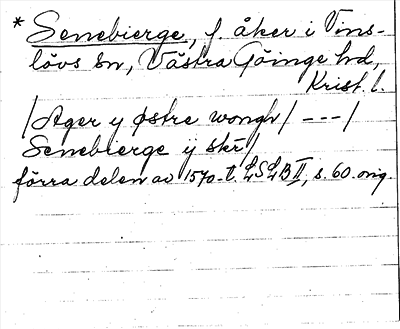 * Senebierge, f. åker i Vins-
lövs sn, Västra Göinge hd,
Krist. l.
/Ager y østre wongh/ ---/
Senebierge ÿ skr/
förra delen av 1570-t. LSLB II, s. 60. orig.